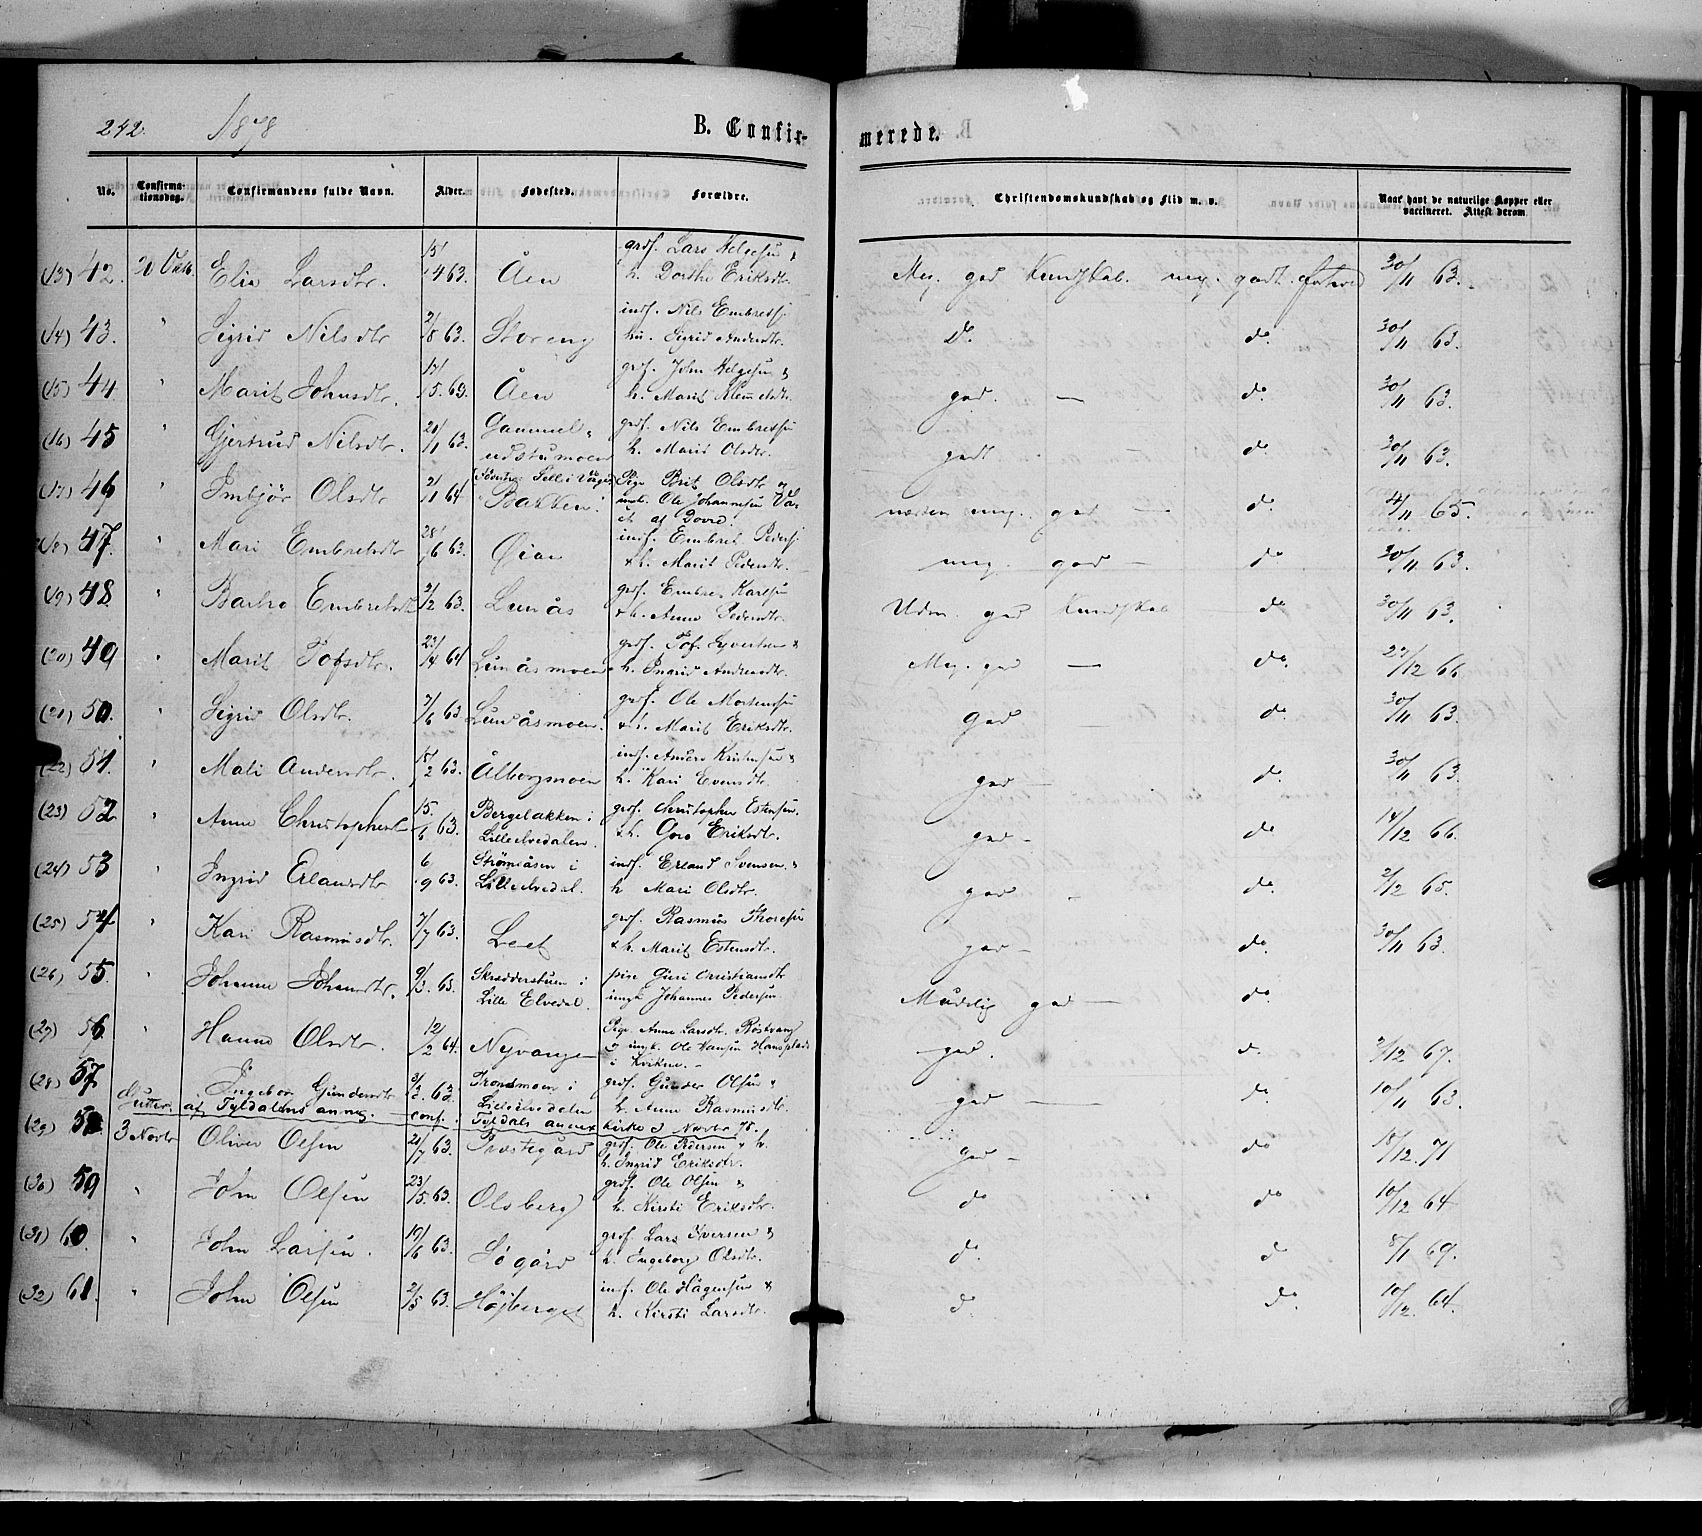 242. 1878 B. Confir- merede.
No. Confirmationsdag. Confirmandens fulde Navn. Alder. Fødested. Forældre. Christendomskundskab og Flid m. v. Naar havt de naturlige Kopper eller vaccineret. Attest derom
(13) 42. 20 Octb. Elie Larsdtr. 15/4 63. Åen grdf. Lars Helgesen & h. Dorthe Eriksdtr. Meg. god Kundskab. meg. godt forhold 30/11 63.
(14) 43. " Sigrid Nilsdtr 2/8 63. Storeng indf. Nils Embretsen hu. Sigrid Andersdtr. Do. do. 30/11 63.
(15) 44 " Marit Johnsdtr. 17/5 63. Åen grdf. John Helgesen & h. Marit Klemetsdtr. god. — do. 30/11 63.
(16) 45 " Gjertrud Nilsdtr. 20/1 63. Gammeludstumoen grdf. Nils Embretsen h. Marit Olsdtr. godt — do. 30/11 63.
(17) 46 " Imbjør Olsdtr. 2/1 64 Bakken. Pige Brit Olsdtr og umk. Ole Johannesen af Dovre. næsten meg. god — do. 4/11 65.
(18) 47. " Mari Embretsdtr 28/6 63. Øian indf. Embret Pedersen & h. Marit Pedersdtr. meg. god — do 30/11 63.
(19) 48. " Embretsdtr 2/2 63. Lunås grdf. Embret Karlsen & h. Anne Pedersdtr. Udm. god Kundskab do 30/11 63.
(20) 49 " Marit Tofsdtr. 23/4 64 Lunåsmoen grdf. Tof. Syvertsen & h. Ingrid Andersdtr. Meg. god — do. 27/12 66.
(21) 50. " Sigrid Olsdtr. 3/6 63 Lunåsmoen. grdf. Ole Mortensen & h. Marit Eriksdtr. God — do. 30/11 63.
(22) 51. " Mali Andersdtr. 18/2 63. Ålborgmoen indf. Anders Kristensen & h. Kari Evensdtr. god — do. 30/11 63.
(23) 52 " Anne Christophersdtr 15/6 63. Bergebakken i Lilleelvedalen. grdf. Christopher Estensen. & h. Goro Eriksdtr. god — do 14/12 66.
(24) 53 " Ingrid Erlandsdtr 6/9 63. Strømsåsen i Lilleelvedal. indf. Erland Svensen & h Mari Olsdtr. god - do. 2/12 65.
(25) 54 " Kari Rasmusdtr. 7/7 63. Leet grdf. Rasmus Thoresen & h. Marit Estensdtr. god — do. 30/11 63.
(26) 55. " Johanne Johansdtr. 9/3 63. Skrædderstuen i Lille Elvedal. pige Guri Christiansdtr ungk Johannes Pedersen Maadelig god — do.
(27) 56 " Hanne Olsdtr. 12/2 64. Nyvangen Pige Anne Larsdtr. Röstvang & ungk. Ole Hansen Hansplads i Kvikne.- god. — do. 2/12 67.
(28) 57 Ingebor Gundersdtr 3/2 63. Tronsmoen i Lilleelvedalen grdf. Gunder Olsen & h. Anne Rasmusdtr. god — do. 10/11 63.
Gutter af Tyldalens annex. — conf. i Tyldals annex kirke 3 Novbr 78.
(29) 58 3 Novbr Oliver Olsen 21/7 63. Præstegård grdf. Ole Pedersen & h. h. Ingrid Eriksdtr. god — do. 18/12. 71
(30) 59 " John Olsen 23/5 63. Olsberg grdf. Ole Olsen & h. Kirsti Eriksdtr. do do 10/12 64
(31) 60. " John Larsen. 19/6 63. Søgård grdf. Lars Iversen & h. Ingeborg Olsdtr. do. do 8/1 69.
(32) 61. " John Olsen 2/5 63. Højberget indf. Ole Hågensen & h. Kirsti Larsdtr. do. do. 10/12 64.